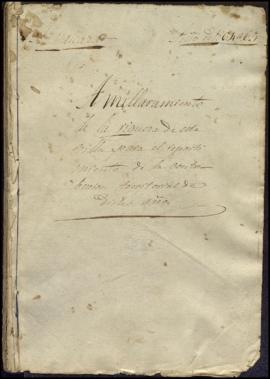 Amillaramiento
de la riqueza de esta
villa para el reparti
miento de la contri
bucion territorial de
dicho año